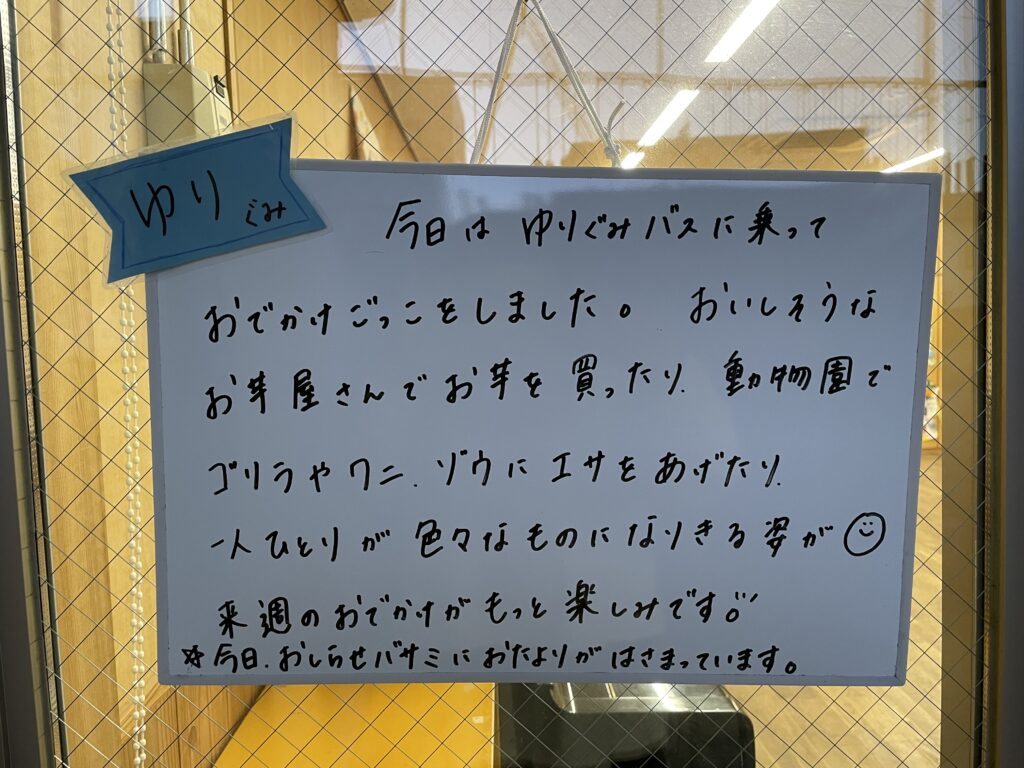 ゆりぐみ
今日は ゆりぐみバスに乗って
おでかけごっこをしました。 おいしそうな
お芋屋さんでお芋を買ったり、動物園で
ゴリラやワニ、ゾウにエサをあげたり、
一人ひとりが色々なものになりきる姿が☺
来週のおでかけがもっと楽しみです。
☆今日、おしらせバサミにおたよりがはさまっています。